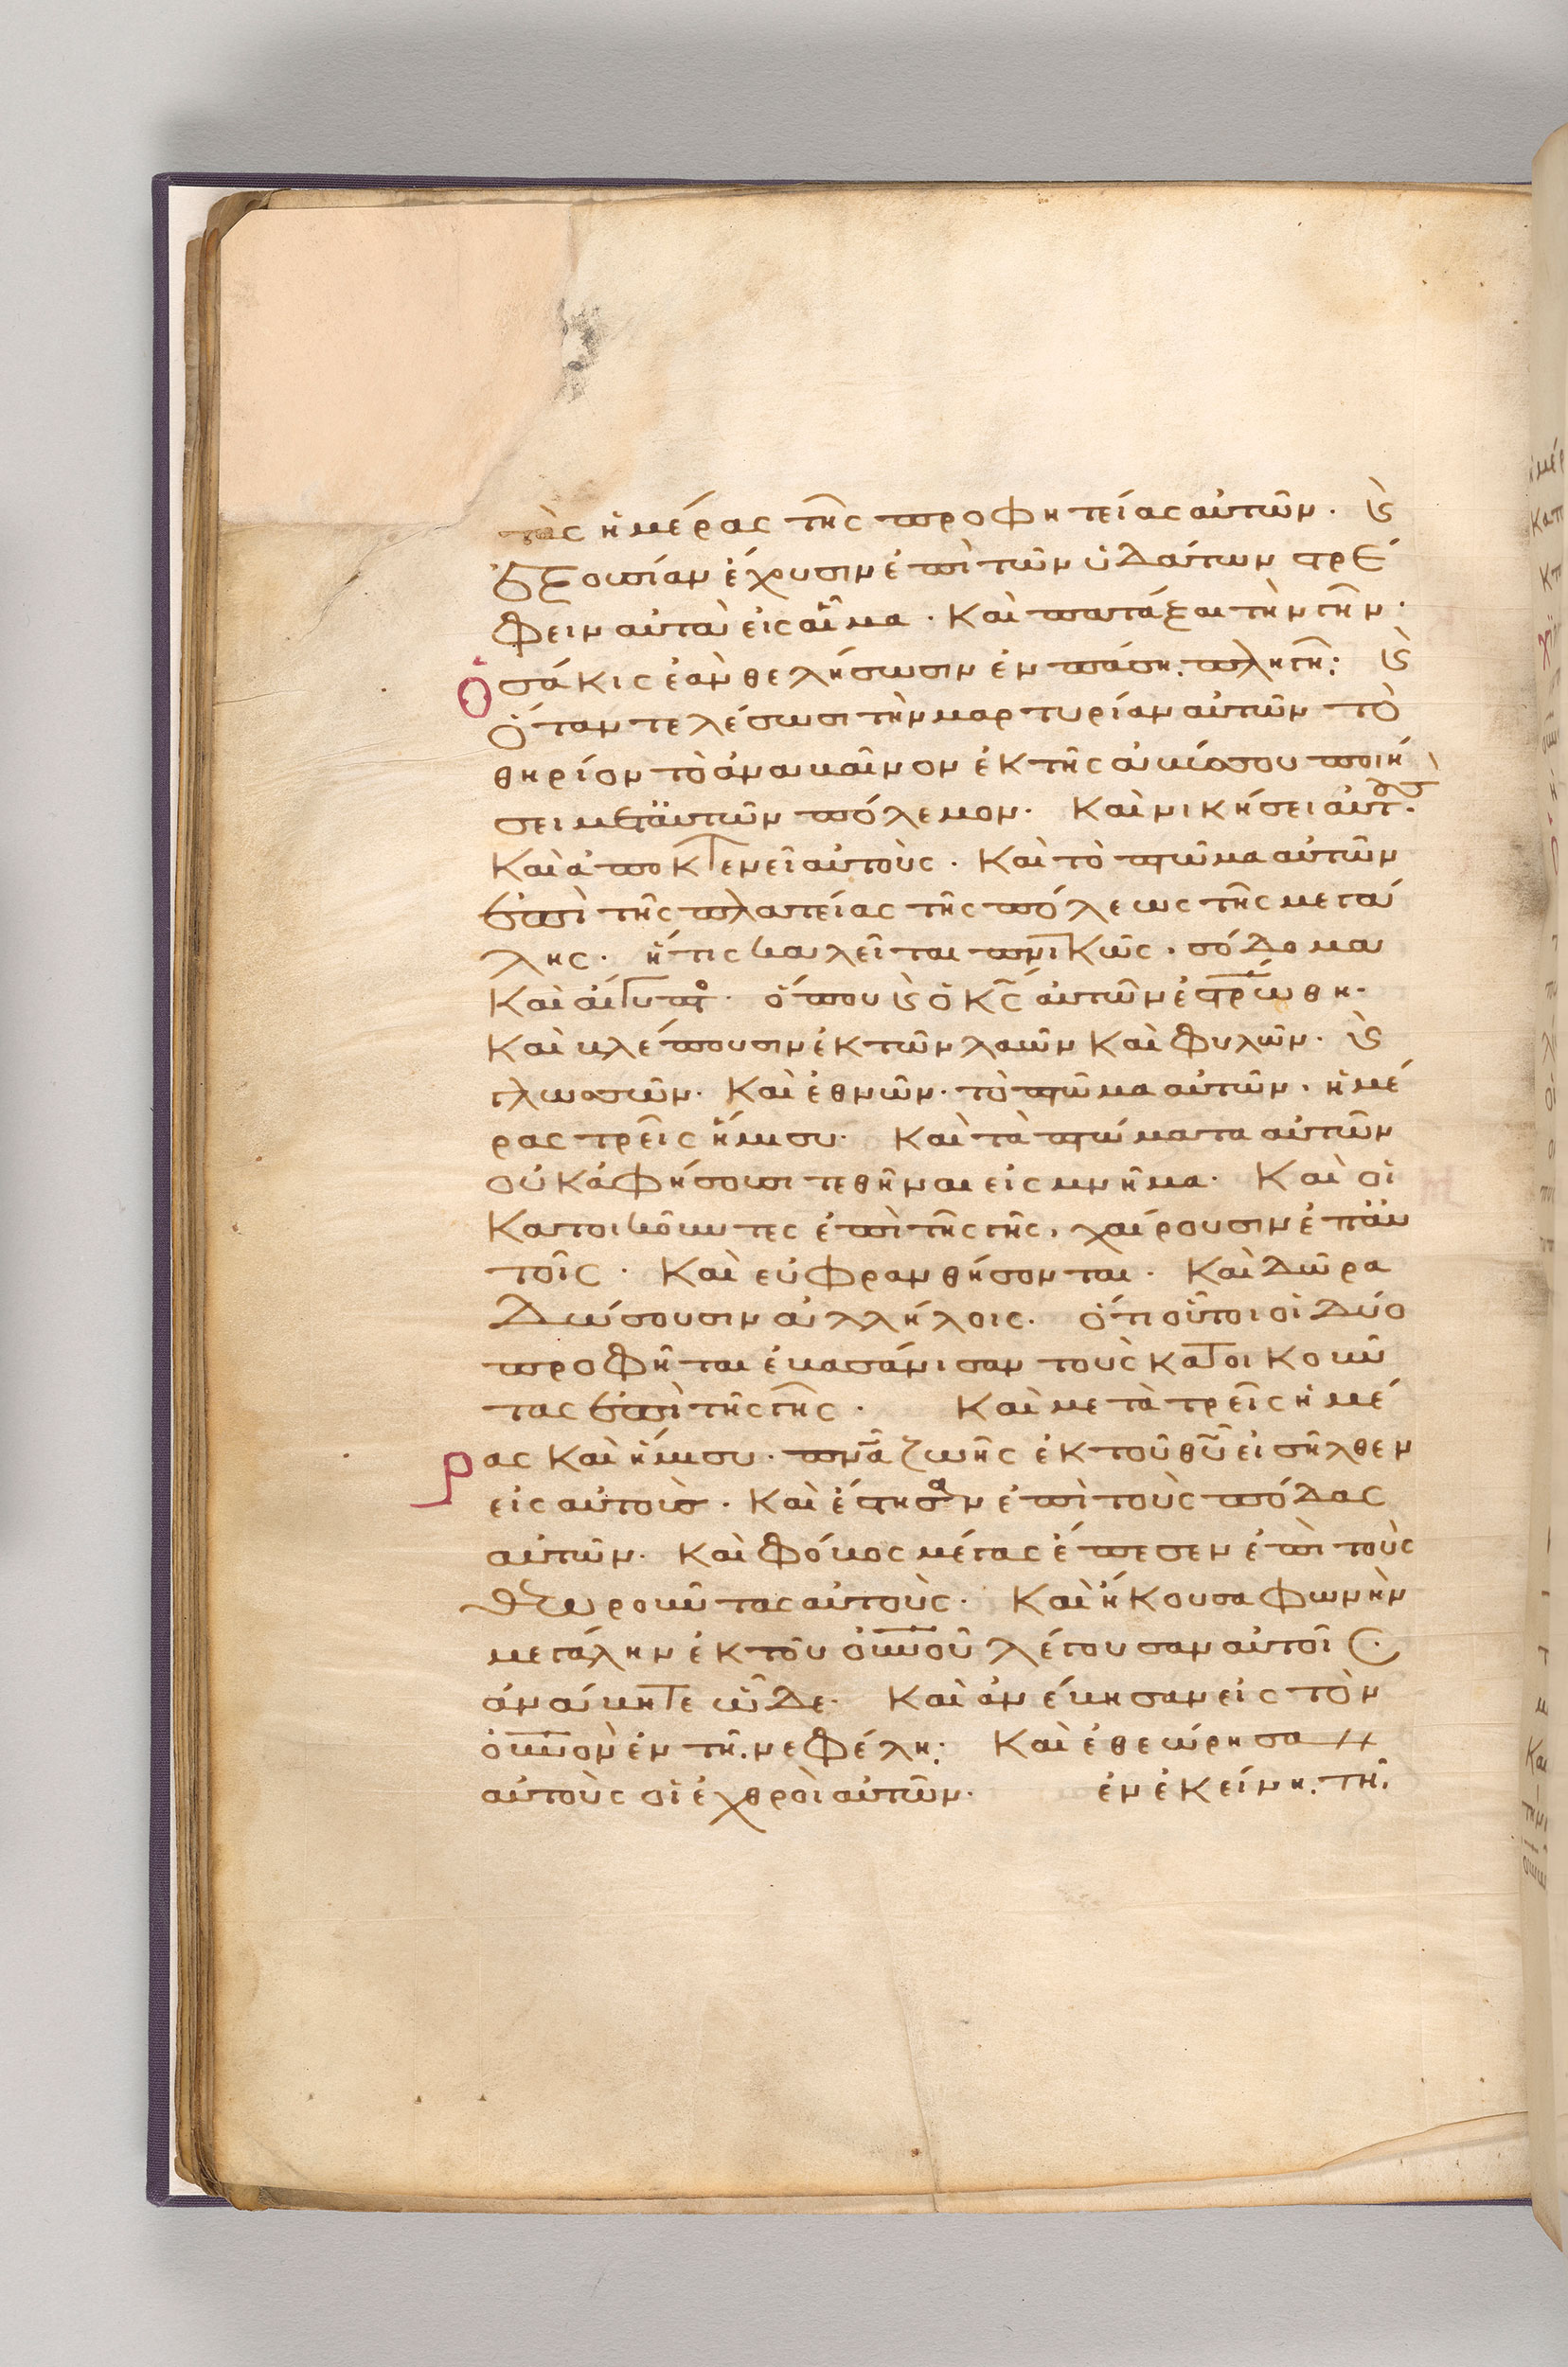 τὰς ἡμέρας τῆς προφητείας αὐτῶν. ϗ̀
ἐξουσίαν ἔχουσιν ἐπὶ τῶν ὑδάτων στρέ
φειν αὐτὰ εἰς αἷμα. Καὶ πατάξαι τὴν γῆν.
ὁσάκις ἐὰν θελήσωσιν ἐν πάση πληγῆ. ϗ̀
ὅταν τελέσωσι τὴν μαρτυρίαν αὐτῶν τὸ
θηρίον τὸ ἀναβαῖνον ἐκ τῆς ἀβύσσου ποιή
σει μετ αὐτῶν πόλεμον. Καὶ νικήσει αὐτοὺς.
Καὶ ἀποκτενεῖ αὐτοὺς. Καὶ τὸ πτῶμα αὐτῶν
ἐπὶ τῆς πλατείας τῆς πόλεως τῆς μεγά
λης. ἥτις καλεῖται πνικῶς. σόδομα
Καὶ αἴγυπτος. ὅπου ϗ̀ ὁ κς αὐτῶν ἐστρώθη.
Καὶ βλέπουσιν ἐκ τῶν λαῶν Καὶ φυλῶν. ϗ̀
γλωσσῶν. Καὶ ἐθνῶν. τὸ πτῶμα αὐτῶν. ἡμέ
ρας τρεῖς ἥμισυ. Καὶ τὰ πτώματα αὐτῶν
οὐκ ἀφήσουσι τεθῆναι εἰς μνῆμα. Καὶ οἱ
Κατοικοῦντες ἐπὶ τῆς γῆς, χαίρουσιν ἐπ αὐ
τοῖς. Καὶ εὐφρανθήσονται. Καὶ δῶρα
δώσουσιν ἀλλήλοις. ὅτι οὗτοι οἱ δύο
προφῆται ἐβασάνισαν τοὺς κατοικοῦν
τας ἐπὶ τῆς γῆς. Καὶ μετὰ τρεῖς ἡμέ
ρας Καὶ ἥμισυ. πνα ζωῆς ἐκ τοῦ θυ εἰσῆλθεν
εἰς αὐτοὺς. Καὶ ἔστησαν ἐπὶ τοὺς πόδας
αὐτῶν. Καὶ φόβος μέγας ἔπεσεν ἐπὶ τοὺς
θεωροῦντας αὐτοὺς. Καὶ ἤκουσα φωνὴν
μεγάλην ἐκ τοῦ οὐνοῦ λέγουσαν αὐτοῖς.
ἀνάβητε ὧδε. Καὶ ἀνέβησαν εἰς τὸν
οὐνὸν ἐν τῆ νεφέλη. Καὶ ἐθεώρησα
αὐτοὺς οἱ ἐχθροὶ αὐτῶν. ἐν ἐκείνη τῆ